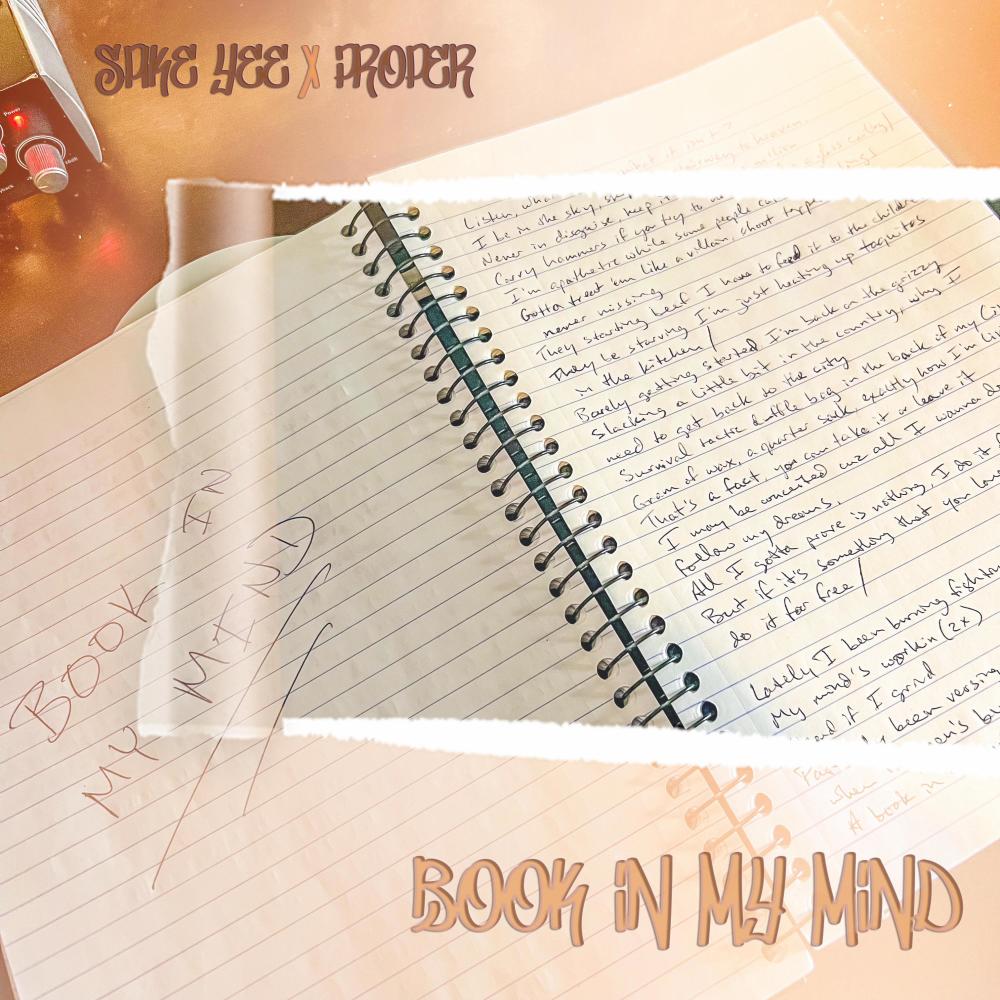 SPKE YEE X PROPER
Power
what it isn't
stairway to heaven,
million
glass ceiling/
Listen, who
I be in the sky,
Never in disguise keep it
Carry hammers if you try to
I'm apathetic while some people
Gotta treat em like a villain, shoot
never missing
They starting beef I have to feed it to the children
They be starving I'm just heating up taquitos
in the kitchen/
Barely getting started I'm back on the grizzy
Slacking a little bit in the country, why I
need to get back to the city
Survival tactic duffle bag in the back of my
Gram of wax, a quarter sack, exactly how I'm
That's a fact you can take it or leave it
I may be conceited cuz all I wanna do
follow my dreams.
All I gotta prove is nothing, I do it
But if it's something that you love
do it for free/
Lately I been burning
My mind's workin (2x)
if I grind
been
when
A book in
BOOK
MY IN
MIND
BOOK IN MY MIND